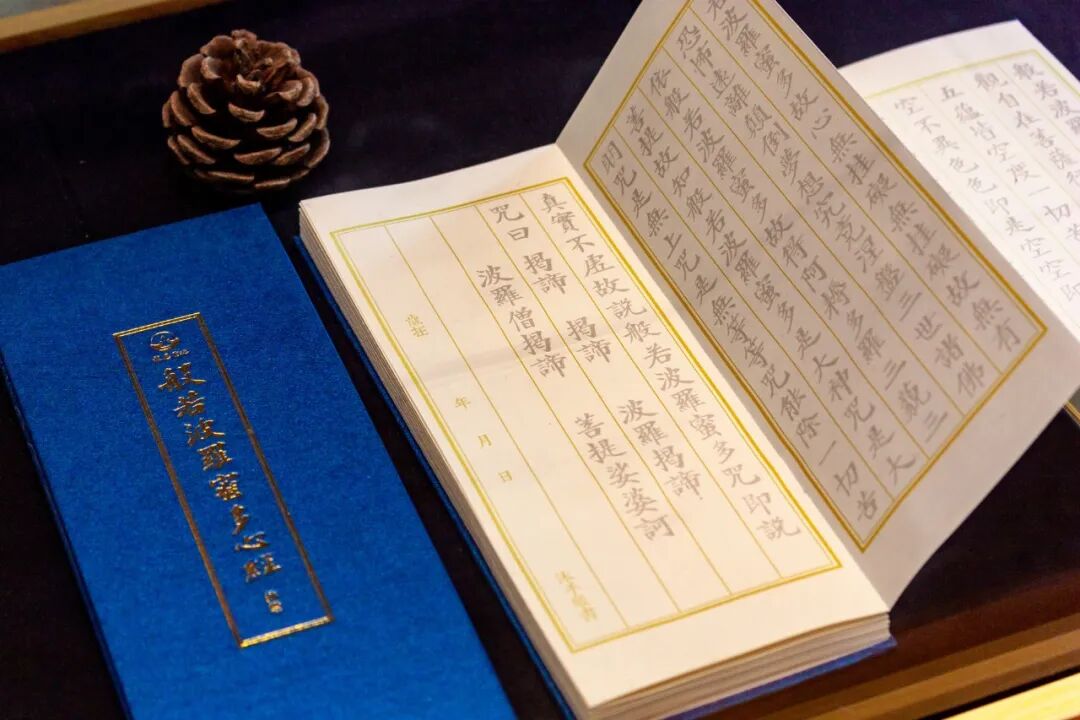 般若波羅蜜多心經
般若波羅
觀自在菩薩行
五蘊皆空度一切苦
空不異色色即是空空即
若波羅蜜多故心無挂礙無挂礙故無有
恐怖遠離顛倒夢想究竟涅盤三世諸佛
依般若波羅蜜多故得阿耨多羅三藐三
菩提故知般若波羅蜜多是大神咒是大
明咒是無上咒是無等等咒能除一切苦
真實不虛故說般若波羅蜜多咒即說
咒曰 揭諦 揭諦 波羅揭諦
波羅僧揭諦 菩提娑婆訶
歲在 年 月 日 沐手敬書